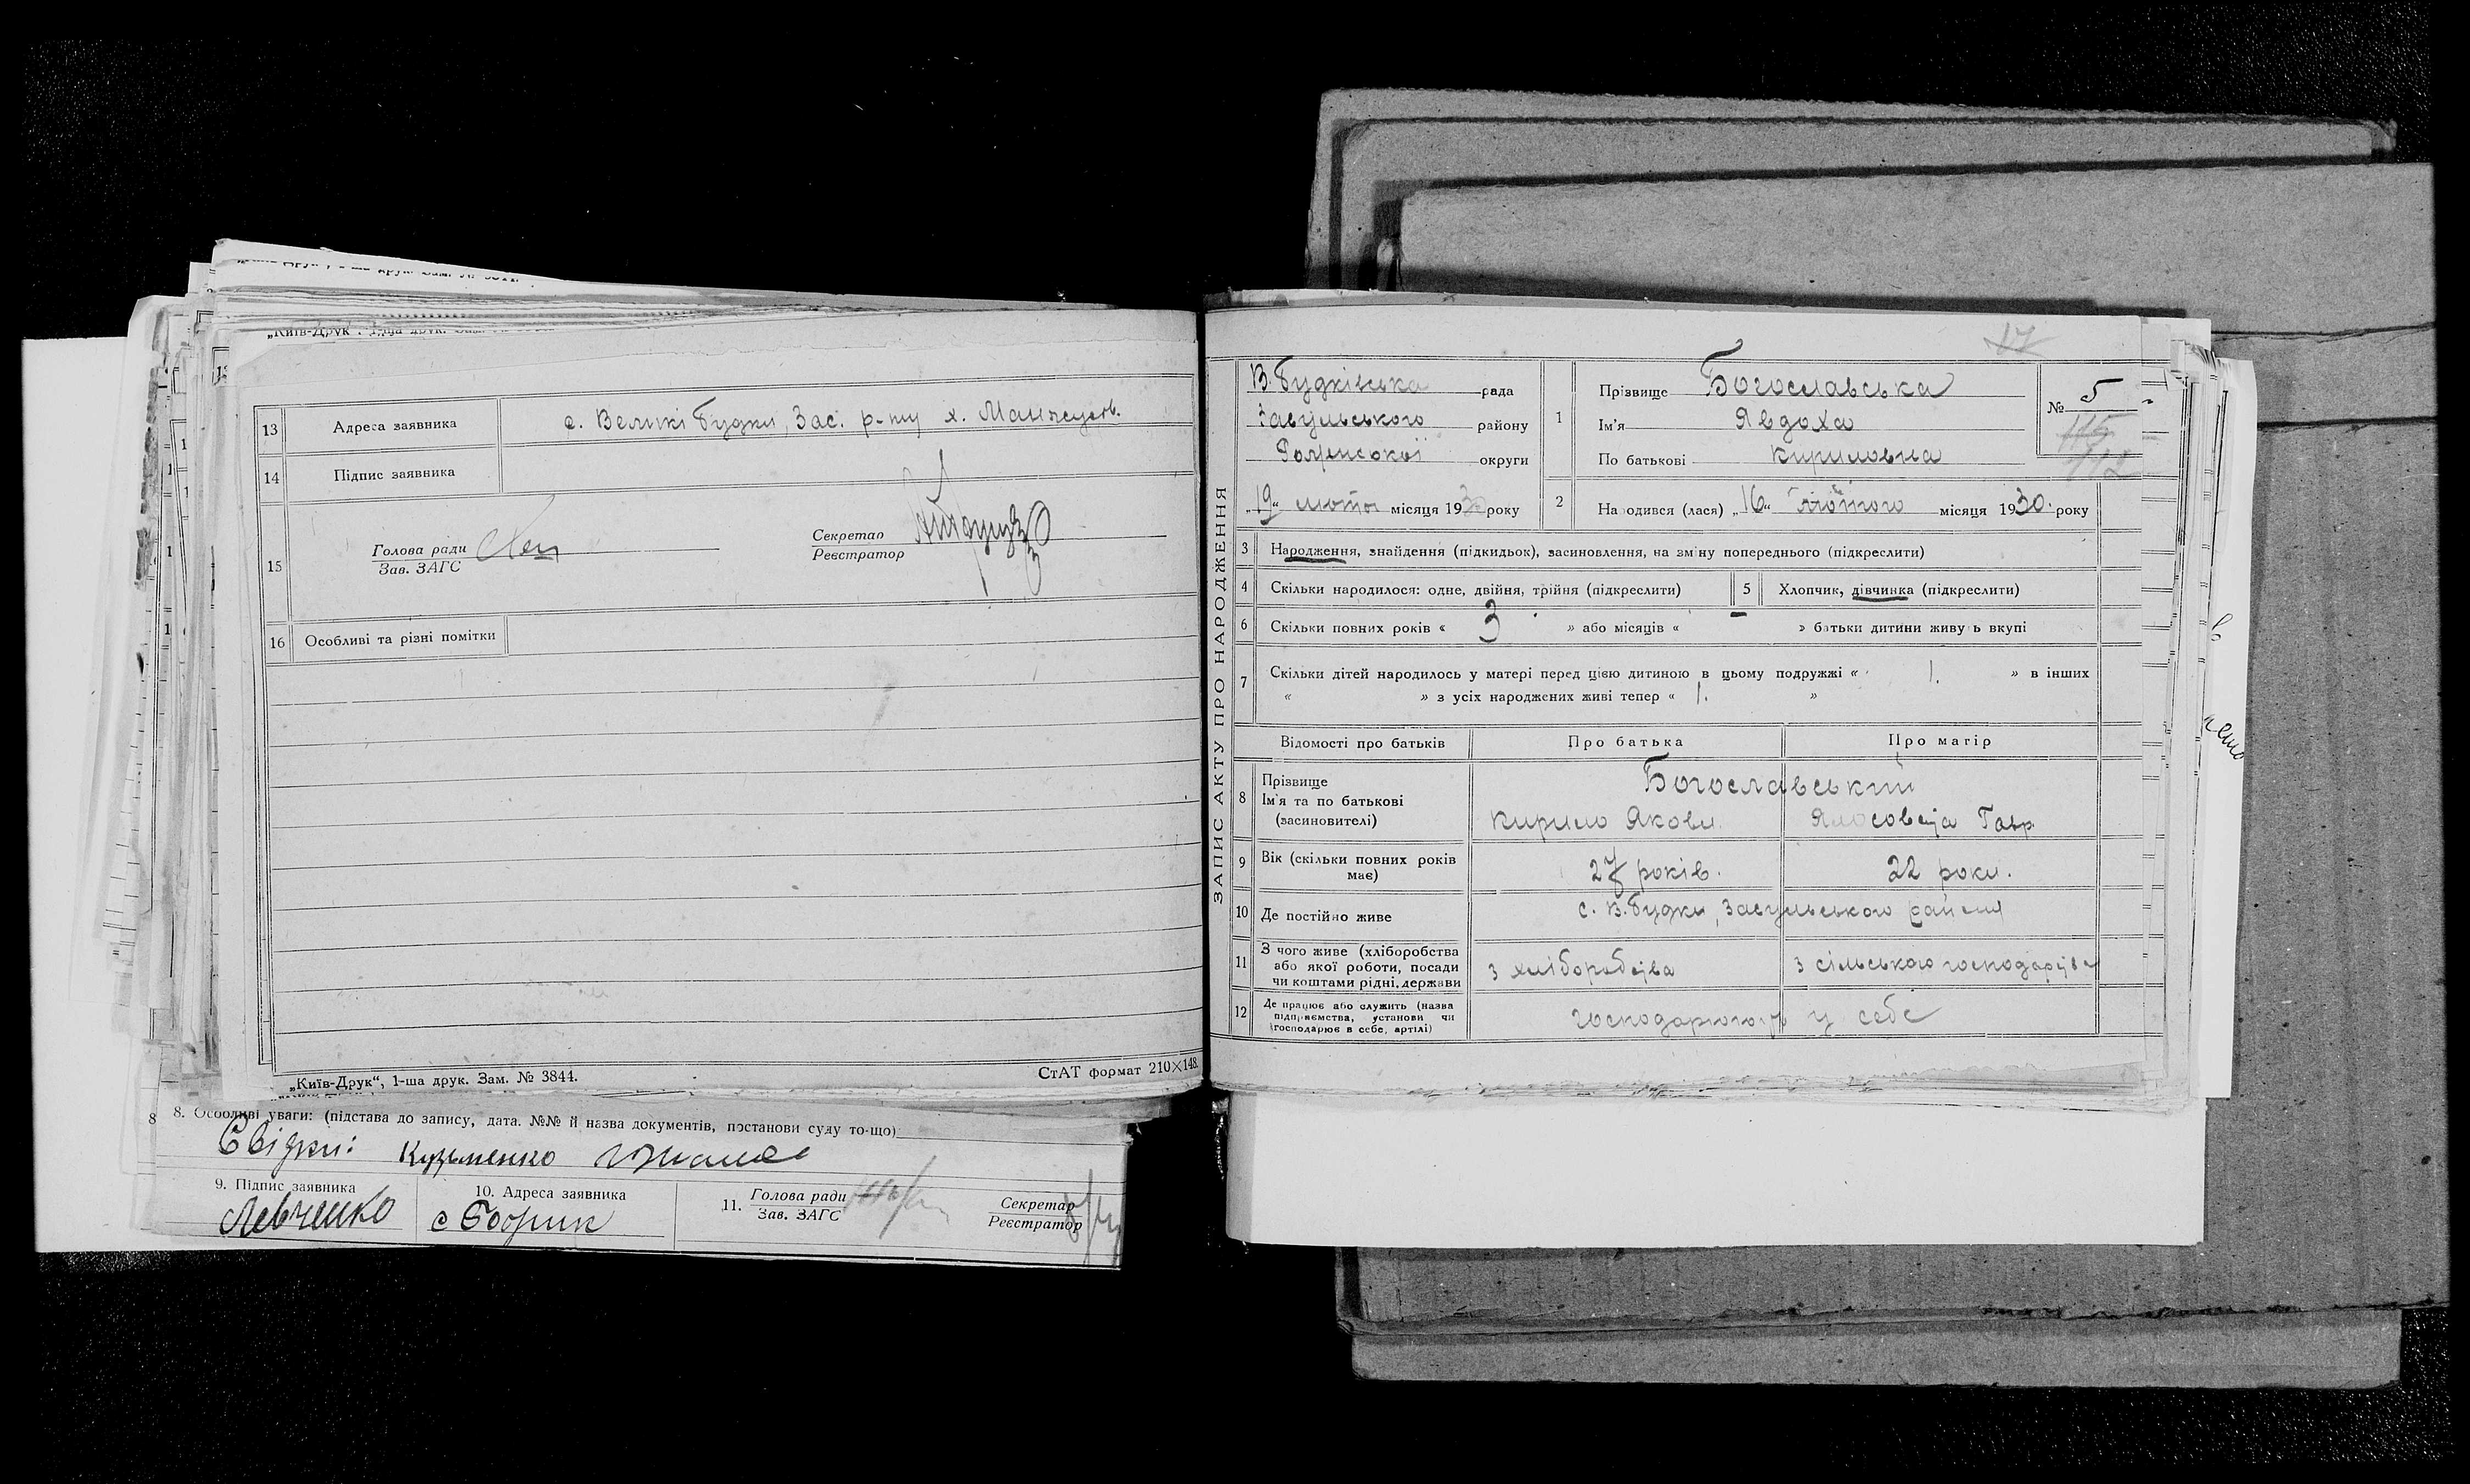 „Київ-Друк", 1-ша друк. Зам. №
13 Адреса заявника с. Великі Будки, Зас. р-ну х.
14 Підпис заявника
15 Голова ради
Зав. ЗАГС
Секретар
Реєстратор
16 Особливі та різні помітки
„Київ-Друк“, 1-ша друк. Зам. № 3844.
СтАТ формат 210×148.
8. Особливі уваги: (підстава до запису, дата. №№ й назва документів, постанови суду то-що)
Свідки: Кузьменко
9. Підпис заявника
Левченко
10. Адреса заявника
с Бобрик
11. Голова ради
Зав. ЗАГС
Секретар
Реєстратор
ЗАПИС АКТУ ПРО НАРОДЖЕННЯ
17
В. Будківська рада
Засульського району
Роменської округи
„19“ лютого місяця 1930 року
1 Прізвище Богославська
Ім'я Явдоха
По батькові Кириловна
№ 5
115
112
2 Народився (лася) „16“ лютого місяця 1930. року
3 Народження, знайдення (підкидьок), засиновлення, на зміну попереднього (підкреслити)
4 Скільки народилося: одне, двійня, трійня (підкреслити)
5 Хлопчик, дівчинка (підкреслити)
6 Скільки повних років « 3 » або місяців « – » батьки дитини живуть вкупі
7 Скільки дітей народилось у матері перед цією дитиною в цьому подружжі « 1. » в інших
« » з усіх народжених живі тепер « 1. »
Відомості про батьків Про батька Про матір
8 Прізвище
Ім'я та по батькові
(засиновителі)
Богославський
Кирило Яковл. Гавр.
9 Вік (скільки повних років має) 27 років. 22 роки.
10 Де постійно живе с. В. Будки, Засульського району
11 З чого живе (хліборобства або якої роботи, посади чи коштами рідні, держави з хліборобства з сільського господарства
12 Де працює або служить (назва підприємства, установи чи господарює в себе, артілі) господарюють у себе